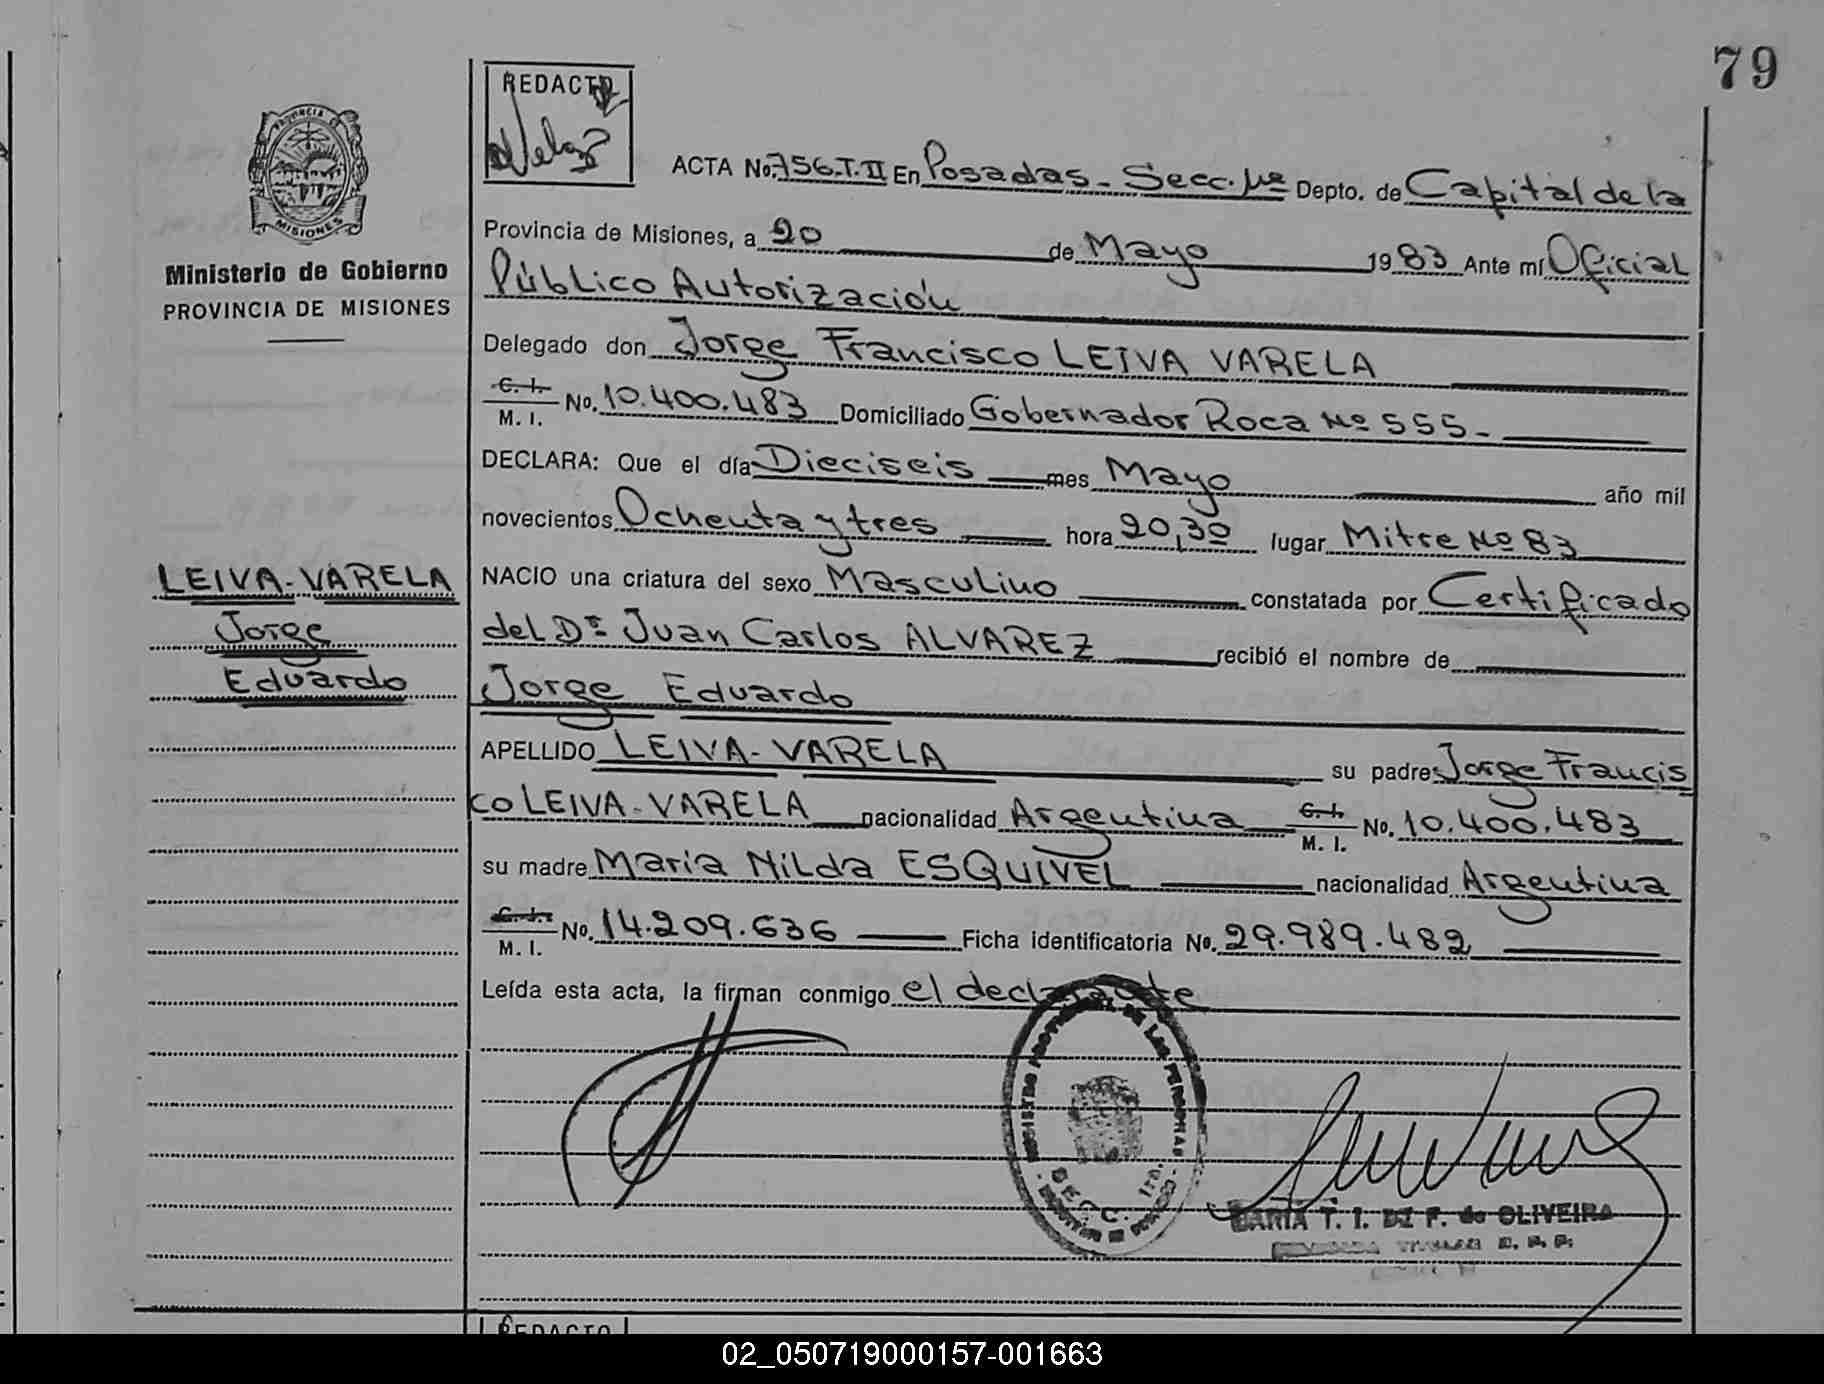 79
REDACTO
PROVINCIA DE
MISIONES
Ministerio de Gobierno
PROVINCIA DE MISIONES
ACTA No. 756.T.II En Posadas - Secc. 1ª Depto. de Capital de la
Provincia de Misiones, a 20 de Mayo 1983 Ante mí Oficial
Público Autorización
Delegado don Jorge Francisco LEIVA VARELA
C. I.
M. I. No. 10.400.483 Domiciliado Gobernador Roca Nº 555-
DECLARA: Que el día Dieciseis mes Mayo año mil
novecientos Ochenta y tres hora 20,30 lugar Mitre Nº 83
NACIO una criatura del sexo Masculino constatada por Certificado
del Dr Juan Carlos ALVAREZ recibió el nombre de
Jorge Eduardo
APELLIDO LEIVA-VARELA su padre: Jorge Francis
co LEIVA-VARELA nacionalidad Argentina C. I.
M. I. No. 10.400.483
su madre Maria Nilda ESQUIVEL nacionalidad Argentina
C. I.
M. I. No. 14.209.636 Ficha identificatoria No. 29.989.482
Leída esta acta, la firman conmigo el declarante
LEIVA-VARELA
Jorge
Eduardo
REGISTRO PROVINCIAL DE LAS PERSONAS
SECC. 1ra.
MARIA T. I. DZ F. de OLIVEIRA
REDACTO
02_050719000157-001663